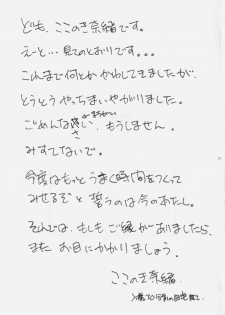 ども、ここのき奈緒です。
えーと…見てのとおりです…
これまで何とか かわしてきましたが、
とうとうやっちまいやがりました。
ごめんなさい。もうしません。
みすてないで。
今度はもっとうまく時間をつくって
みせるぞと誓うのは今のあたし。
それでは、もしもご縁がありましたら、
また お目にかかりましょう。
ここのき奈緒.